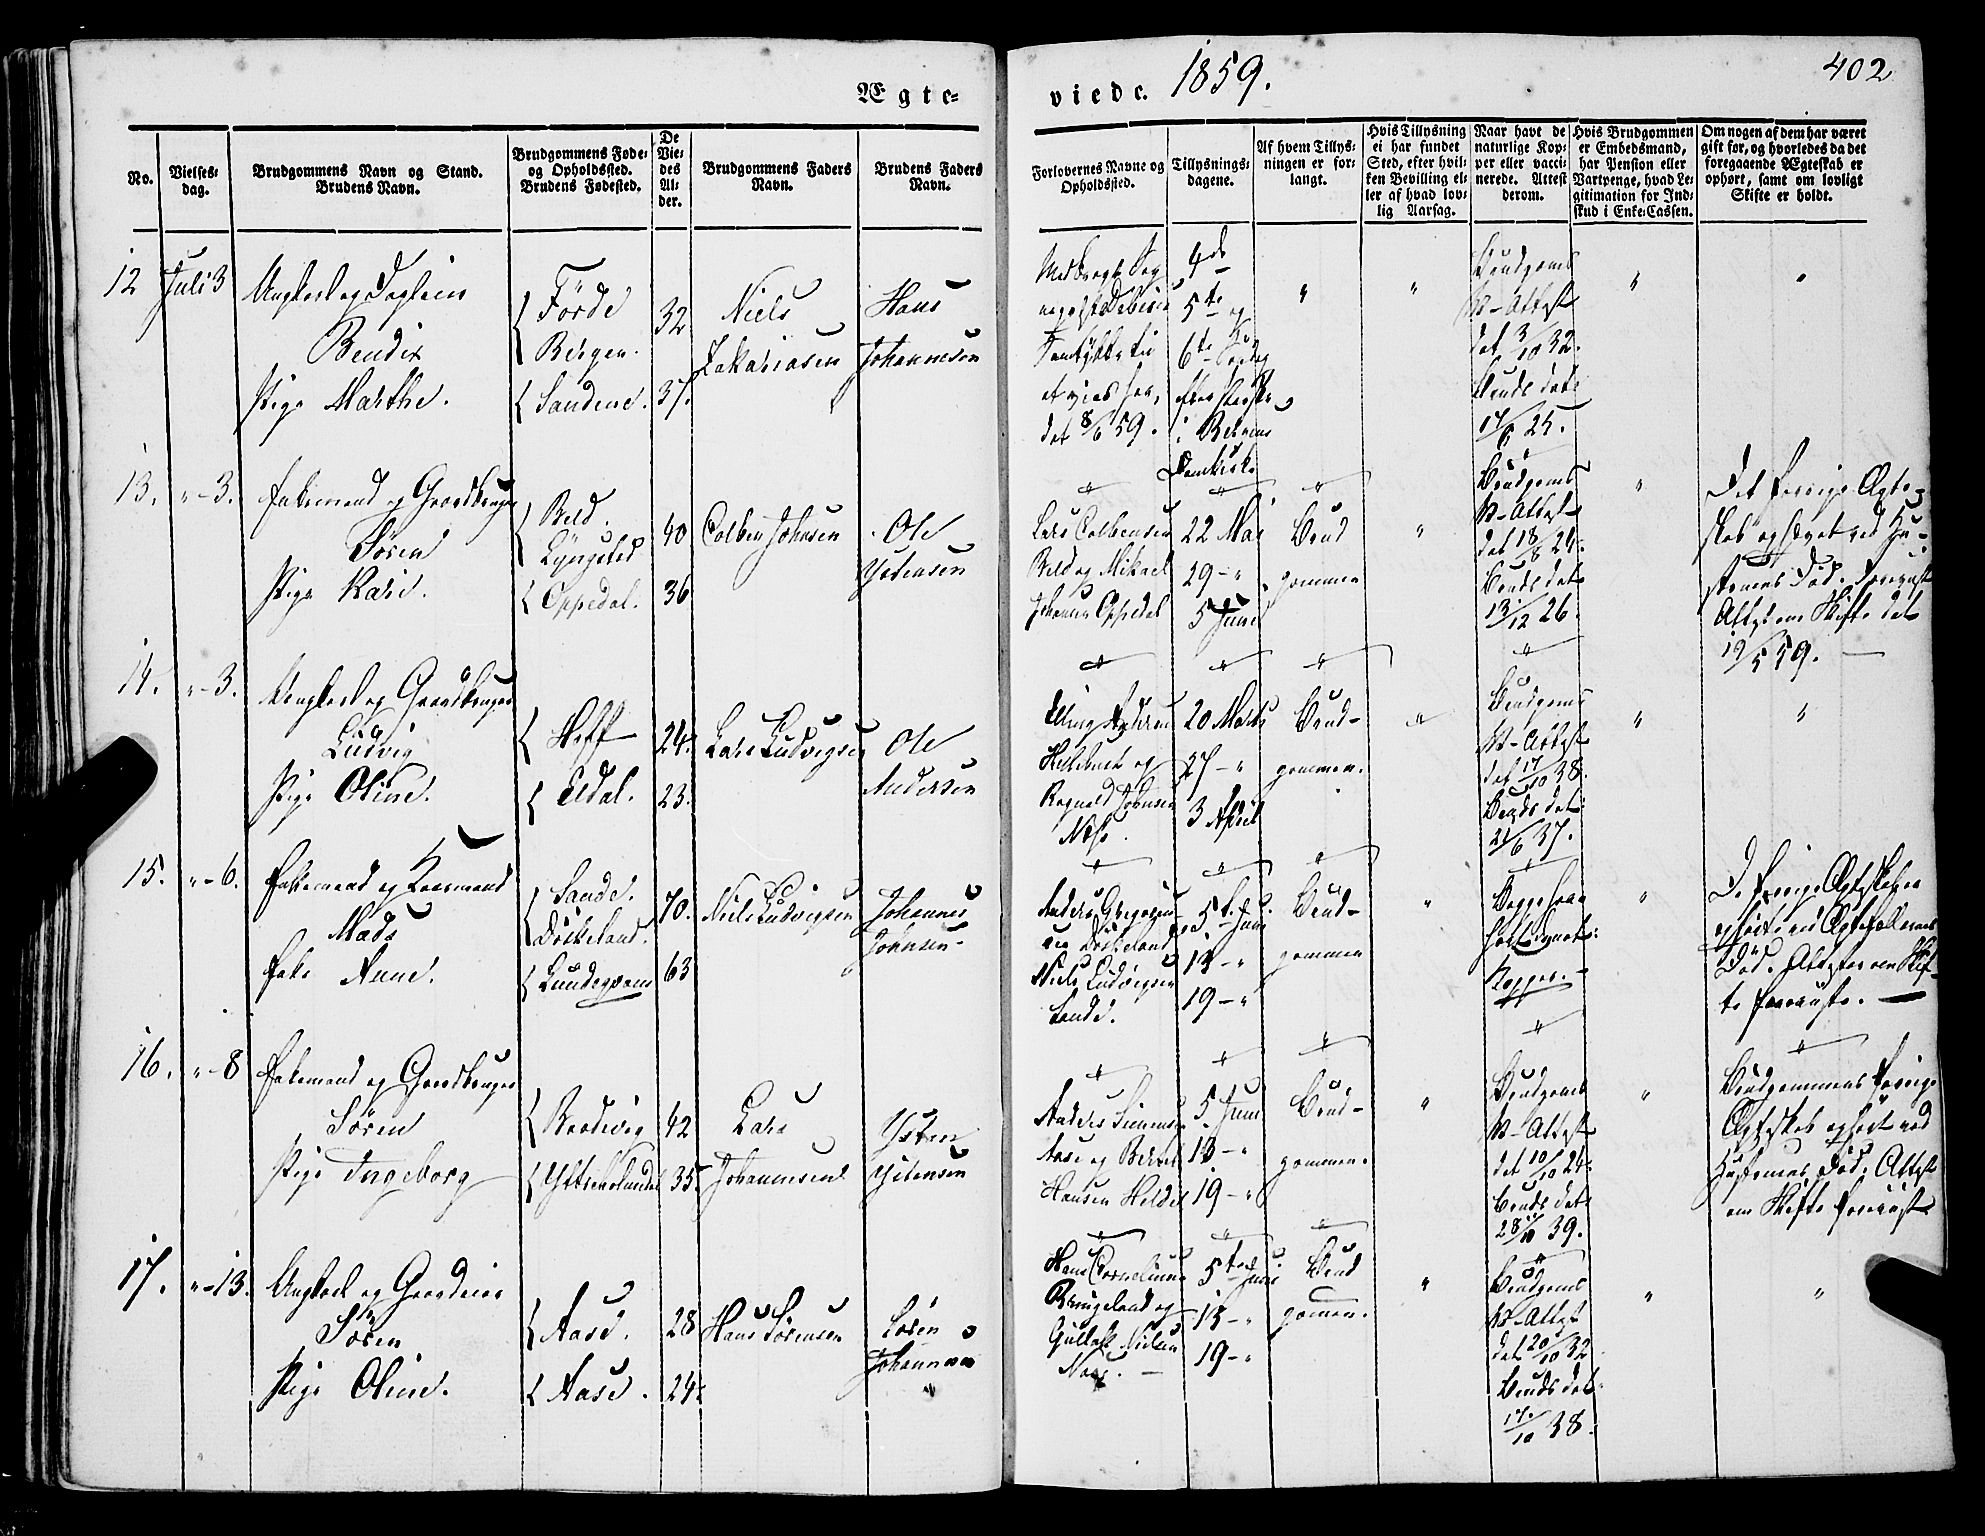 Ægte-
viede. 1859.
402
No.
Vielses-
dag.
Brudgommens Navn og Stand.
Brudens Navn.
Brudgommens Føde-
og Opholdssted.
Brudens Fødested.
De
Vie-
des
Al-
der.
Brudgommens Faders
Navn.
Brudens Faders
Navn.
Forlovernes Navne og
Opholdssted.
Tillysnings-
dagene.
Af hvem Tillys-
ningen er for-
langt.
Hvis Tillysning
ei har fundet
Sted, efter hvil-
ken Bevilling el-
ler af hvad lov-
lig Aarsag.
Naar havt de
naturlige Kop-
per eller vacci-
nerede. Attest
derom.
Hvis Brudgommen
er Embedsmand,
har Pension eller
Vartpenge, hvad Le-
gitimation for Ind-
skud i Enke-Cassen.
Om nogen af dem har været
gift før, og hvorledes da det
foregaaende Ægteskab er
ophørt, samt om lovligt
Skifte er holdt.
12 Juli 3 Ungkarl og
Bendix
Pige Marthe.
Förde
Bergen.
Sandene.
32
37.
Niels
Zakariasen
Hans
Johannesen
4de
5te og
6te
i Bergens
Domkirke
Brudgoms
V-Attest
dat 3/10 32.
Bruds dat
17/6 25.
13. "-3. Enkemand og Gaardbruger
Søren
Pige Kari.
Beld.
Lyngsted
Oppedal.
40
36
Colben Johnsen
Ole
Ystensen
Lars Colbensen
Beld og Mikael
Johannes Oppedal
22 Mai
29 - "
5 Juni
Brud
gommen
Brudgoms
V-Attest
dat 18/8 24.
Bruds dat
13/12 26.
Det forrige Ægte-
skab ophævet ved Hu-
struens Död. Foreviist
Attest om Skifte dat
19/5 59.
14. "-3. Ungkarl og Gaardbruger
Ludvig
Pige Oline.
Hoff
Eldal.
24.
23.
Lars Ludvigsen
Ole
Andersen
Elling Andersen
og
Ragnald Johnsen
Næss.
20 Marts
27 - "
3 April
Brud-
gommen.
Brudgoms
V-Attest
dat 17/10 38.
Bruds dat
21/6 37.
15. "-6. Enkemand og Kaarmand
Mads
Enke Anne.
Sande.
Döskeland.
70.
63
Niels Ludvigsen
Johannes
Johnsen
Anders Gregorsen
Döskeland
Niels Ludvigsen
Sande.
5te Juni
13 - "
19 - "
Brud-
gommen
Begge have
havt
Kopper.
De forrige Ægteskaber
ophört ved Ægtefællernes
Död. Attester om Skif-
te foreviist.
16. "-8 Enkemand og Gaardbruger
Søren
Pige Ingeborg
42
35.
Lars
Johannesen
Ysten
Ystensen
Anders Simonsen
Aase og Bernt
Hansen
5. Juni
13 - "
19 - "
Brud-
gommen.
Brudgoms
V-Attest
dat 10/10 24.
Bruds dat
28/10 39.
Brudgommens forrige
Ægteskab ophört ved
Hustruens Död. Attest
om Skifte foreviist
17. "-13. Ungkarl og Gaardeier
Søren
Pige Oline.
Aase.
Aase.
28
24.
Hans Sørensen
Sören
Johannesen
Hans Cornelius
Bringeland og
Gullak Nielsen
5te Juni
13 - "
19 - "
Brud
gommen.
Brudgoms
V-Attest
dat 20/10 32
Bruds dat.
17/10 38.